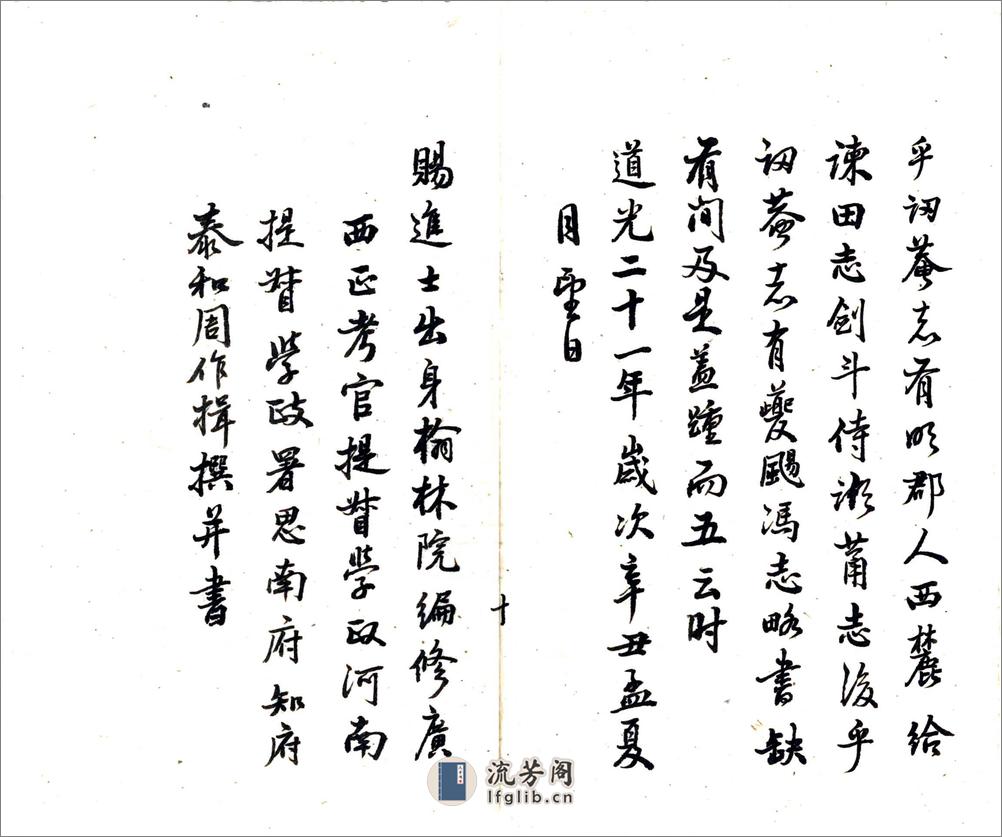 乎訒菴志有明郡人西麓給
諫田志創斗侍御蕭志後乎
訒菴志有夔颺馮志略書缺
有間及是蓋踵而五云时
道光二十一年歲次辛丑孟夏
月望日
十
賜進士出身翰林院編修廣
西正考官提督學政河南
提督學政署思南府知府
泰和周作揖撰并書
流芳阁
lfglib.cn